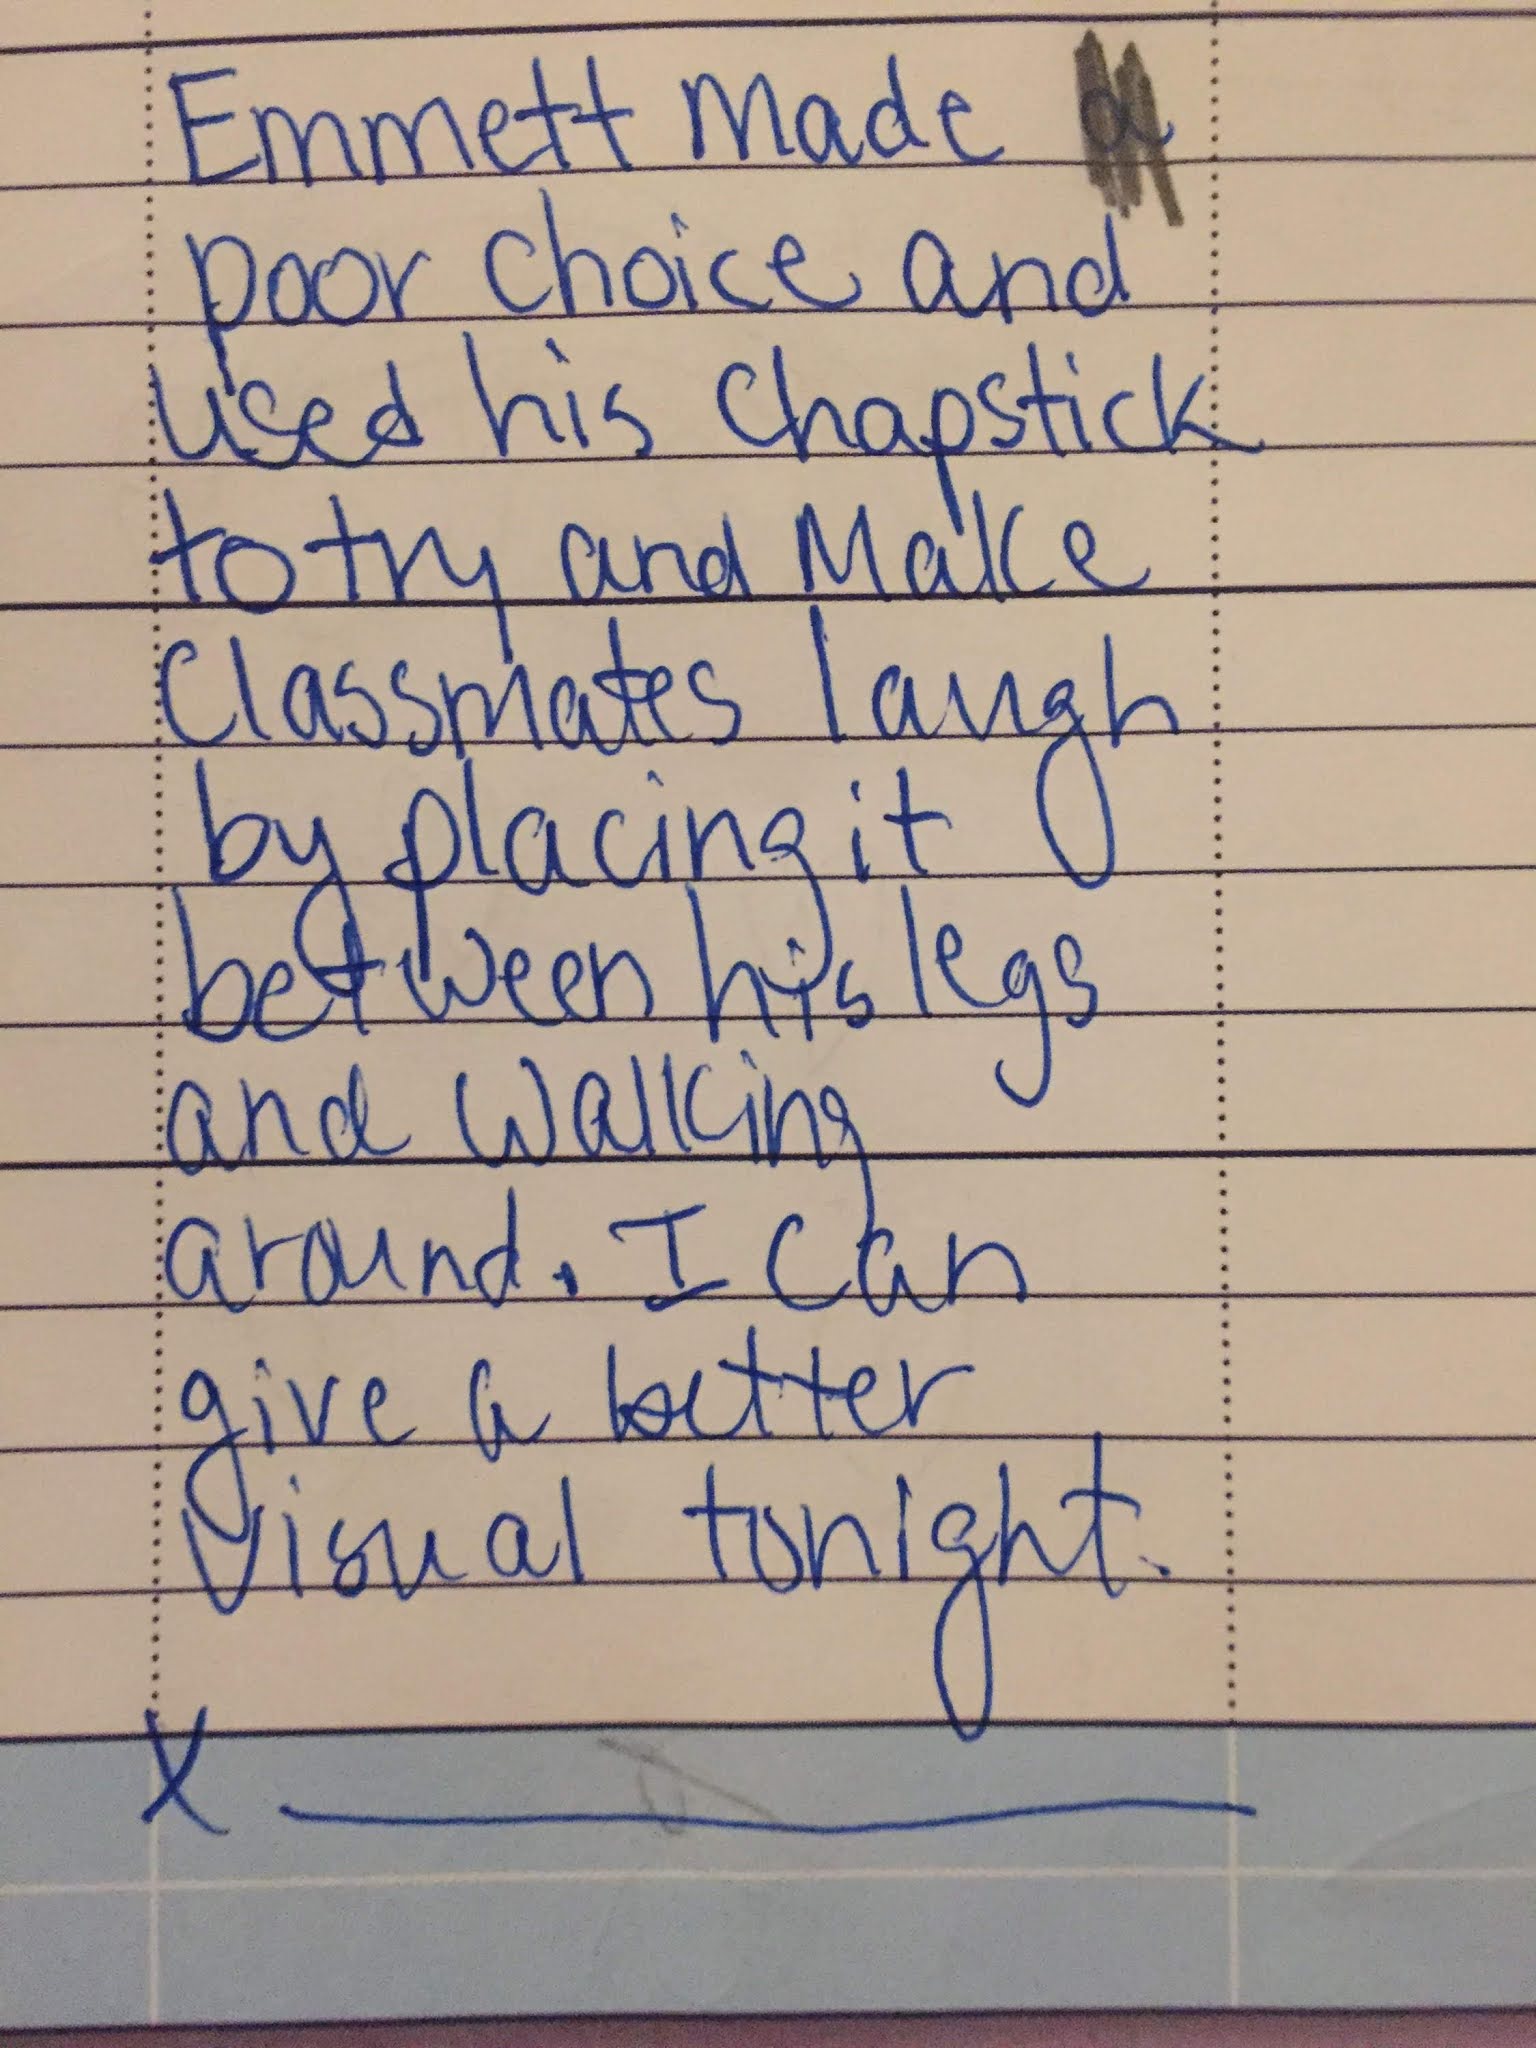 Emmett Made a
poor choice and
used his Chapstick
to try and Make
Classmates laugh
by placing it
between his legs
and walking
around. I can
give a better
visual tonight.
X